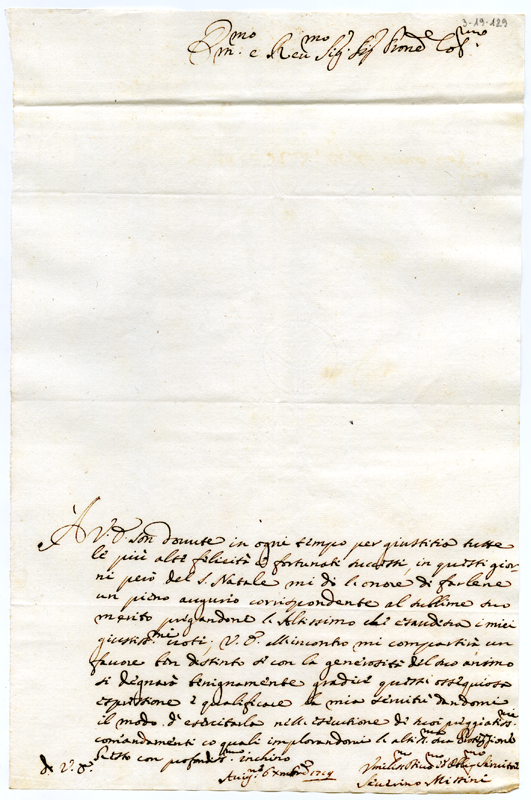 3-19-129
Em.mo e Reu.mo Sig.r Sig.r Prone Col.mo
A V.E. son dovute in ogni tempo per giustitia tutte
le più alte felicità e fortunati successi, in questi gior
ni però del S. Natale mi dà l'onore di farlene
un pieno augurio corrispondente al sublime suo
merito pregandone l'Altissimo che esaudirà i miei
giustiss.mi voti; V.E. all'incontro mi compartirà un
favore ben distinto se con la generosità del suo animo
si degnarà benignamente gradire questa ossequiosa
espressione e qualificare la mia servitù dandomi
il modo d'esercitarla nell'esecutione di suoi pregiatiss.mi
comandamenti co quali implorandone l'altiss.ma sua Protessione
resto con profondiss.mo inchino
di V.E.